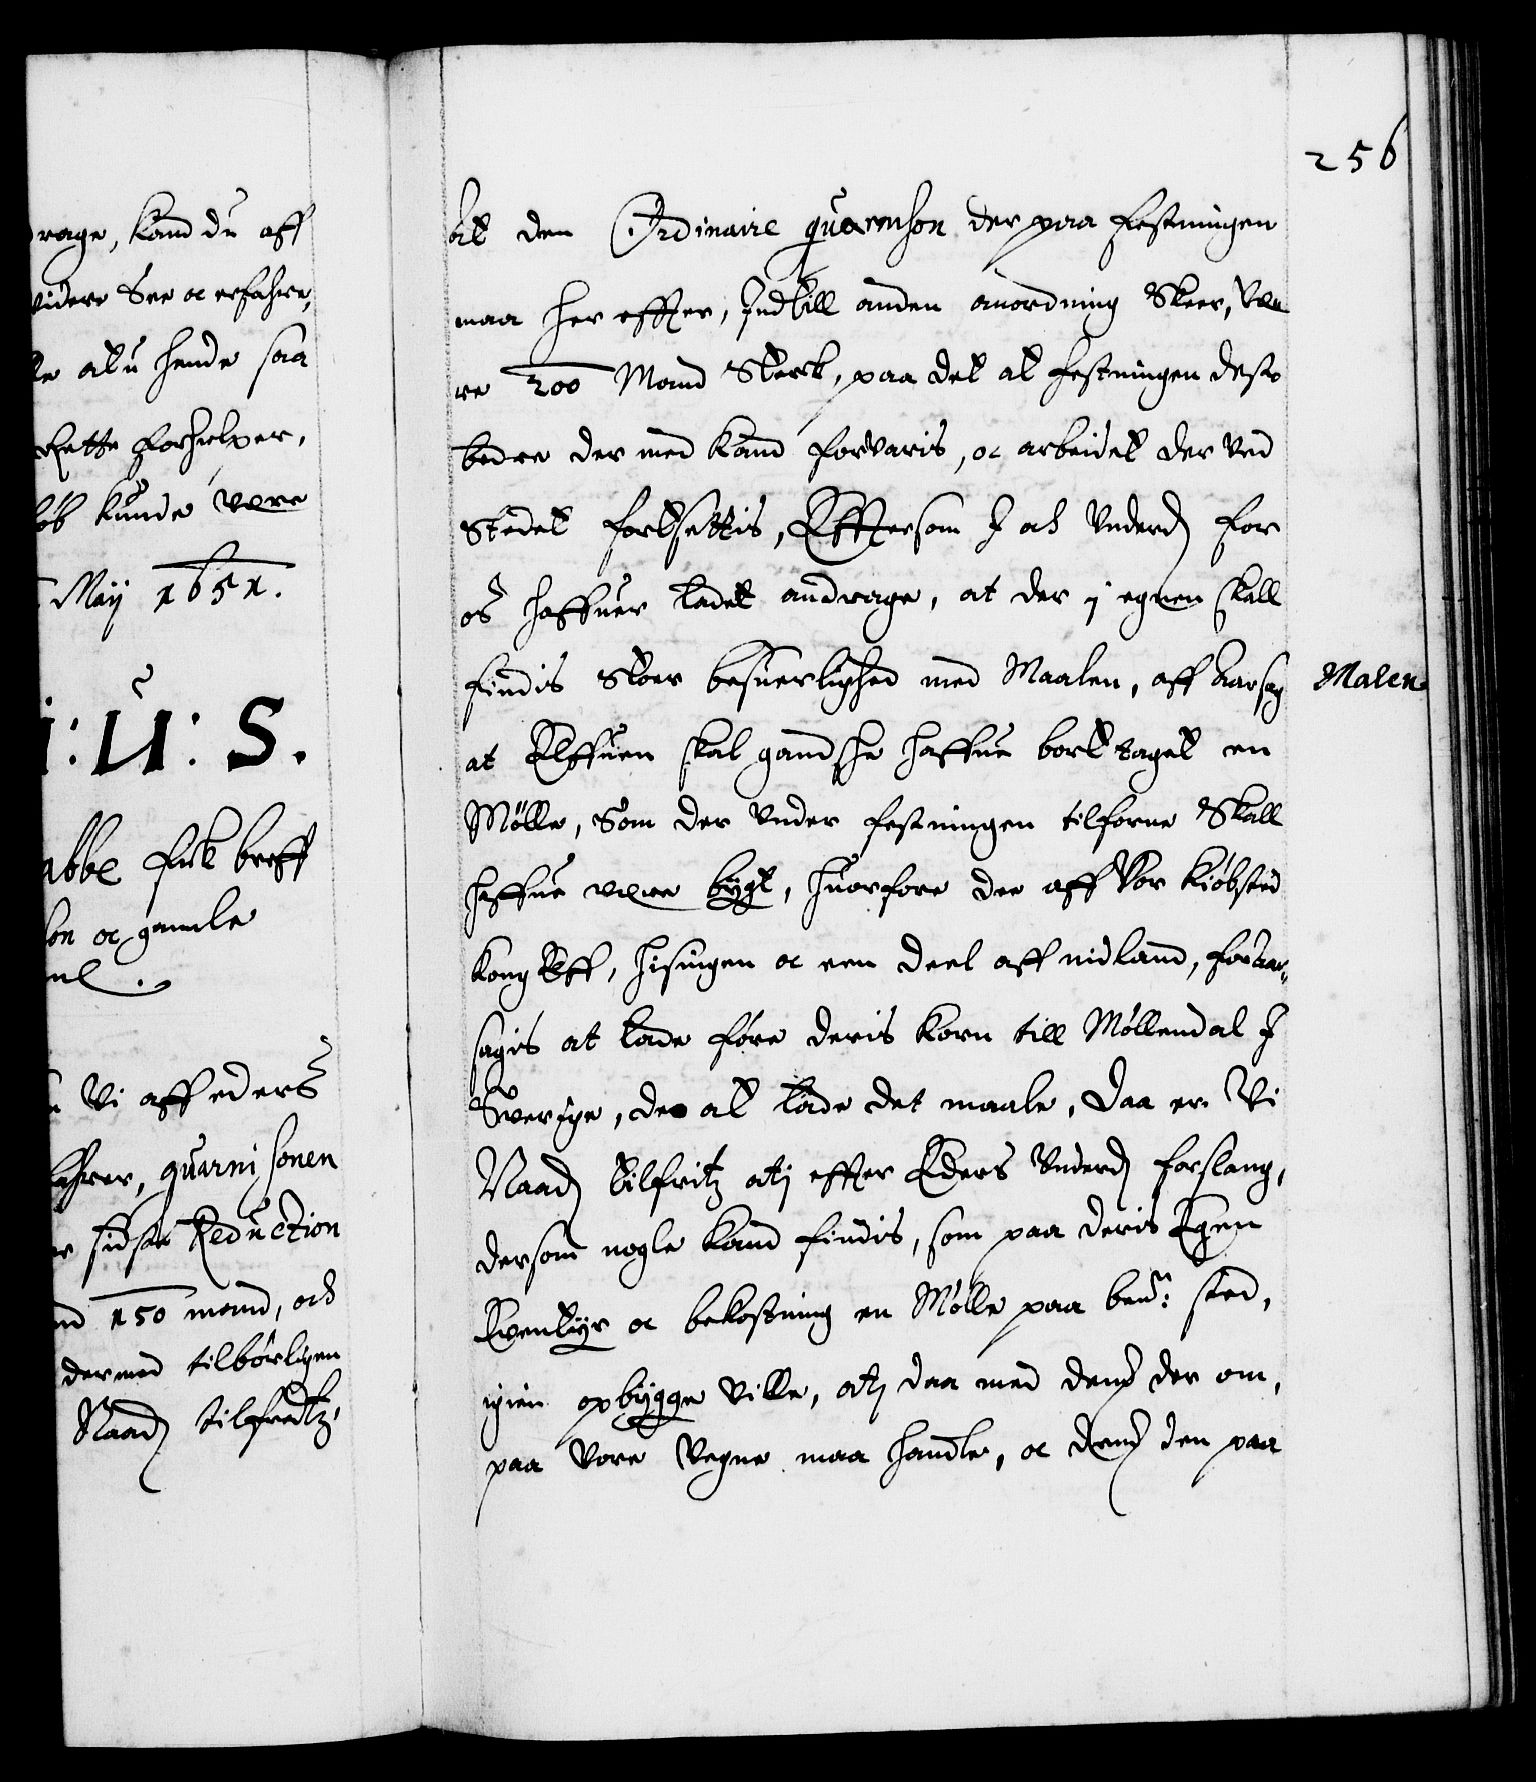 drage, kand du aff
videre See oc erfahre,
le at u hende saa
Rette forhielper,
løb kunde være
Maij 1651.
: U : S.
abbe fick breff
son oc gamle
Vi aff eders
erfahrer, guarnisonen
sidste Reduction
150 mand, och
dermed tilbørligen
Naadj tilfredtz,
256
at den Ordinaire guarnison der paa Festningen
maa her effter, Indtill anden anordning Skeer, Væ
re 200 Mand Sterck, paa det at Festningen dess
bedre der med kand forvaris, oc arbeidet der ved
Stedet fortsettis, Effttersom I och Underdj for
os haffuer ladet andrage, at der i egnen skall
findis Stoer besuerlighed med Maalen, aff Aarsag
Malen
at Elffuen skal gandsche haffue bort taget en
Mølle, Som der under festningen tilforne Skall
haffue være bygt, huorfore de aff Vor kiøbsted
Kong Elff, Hisingen oc een deel aff indland, foraar-
sagis at lade føre deris korn till Møllendal I
Sverige, der at lade det maale, Daa er Vi
Naadj tilfritz atj effter Eders Underdj forslang,
dersom nogle kand findis, som paa deris Egen
Eventyr oc bekostning en Mølle paa bemt: sted,
igien opbygge ville, atj daa med demb der om,
paa Vore Vegne maa handle, oc demb den paa